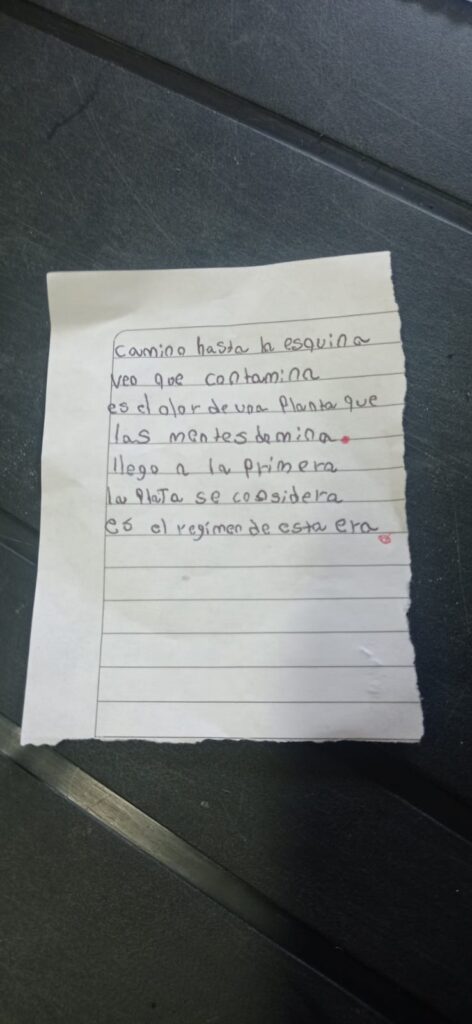 camino hasta la esquina
veo que contamina
es el olor de una planta que
las mentes domina.
llego a la primera
la plata se considera
es el regimen de esta era.